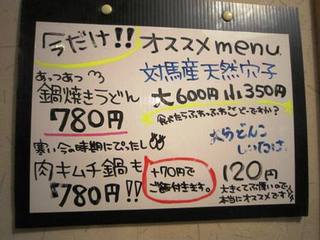 今だけ!! オススメmenu.
あっつあつ
鍋焼きうどん
780円
寒い今の時期にぴったし
肉キムチ鍋も
780円!!
+70円で
ご飯付きます。
対馬産天然穴子
大600円 小350円
食べたらふわっふわっどーですか?
しいたけ
120円
大きくてぶ厚いので
本当にオススメです!!